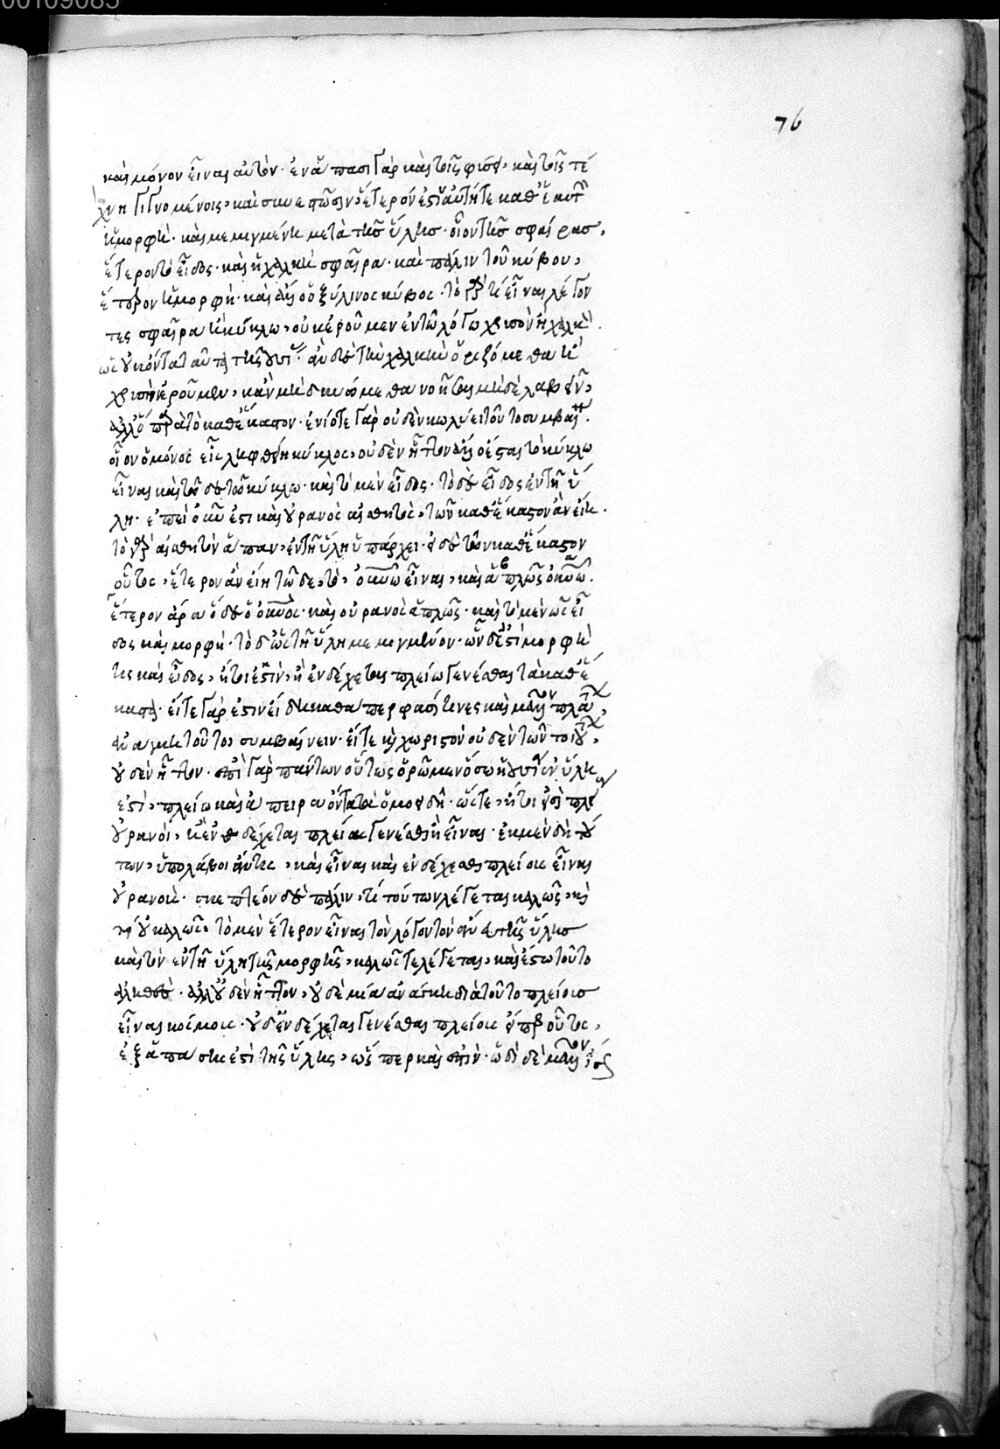 00109085
76
καὶ μόνον εἶναι αὐτόν· ἐν ἅπασι γὰρ καὶ τοῖς φύσει, καὶ τοῖς τέ
χνη γιγνομένοις, καὶ συνεστῶσιν, ἕτερόν ἐστιν αὐτή τε καθ' ἑαυτὴν
ἡ μορφὴ· καὶ μεμιγμένη μετὰ τῆς ὕλης· οἷον τῆς σφαίρας,
ἕτερον τὸ εἶδος· καὶ ἡ χαλκῆ σφαῖρα· καὶ πάλιν τοῦ κύβου,
ἕτερον ἡ μορφὴ· καὶ ὁ ξύλινος κύβος· τὸ γὰρ τί εἶναι λέγον
τες σφαῖρα ἢ κύκλω, οὐκ ἐροῦμεν ἐν τῶ λόγω χρυσὸν ἢ χαλκὸν.
ὡς οὐκ ὄντα ταῦτα τῆς οὐσίας· ἂν δὲ τὴν χαλκῆν ὁριζόμεθα ἢ
χρυσῆν ἐροῦμεν, κἂν μὴ δυνώμεθα νοῆσαι μηδὲ λαβεῖν,
ἄλλό τι παρὰ τὸ καθ' ἕκαστον· ἐνίοτε γὰρ οὐδὲν κωλύει τοῦτο συμβαίνειν·
οἷον ὁ μόνος εἷς ληφθείη κύκλος, οὐδὲν ἧττον ἄλλο ἔσται τὸ κύκλω
εἶναι καὶ τῶδε τῶ κύκλω· καὶ τὸ μὲν εἶδος· τὸ δὲ εἶδος ἐν τῆ ὕ
λη· ἐπεὶ οὖν ἐστι καὶ οὐρανὸς αἰσθητὸς, τῶν καθ' ἕκαστον ἂν εἴη.
τὸ γὰρ αἰσθητὸν ἅπαν, ἐν τῆ ὕλη ὑπάρχει· εἰ δὲ τῶν καθ' ἕκαστον
οὗτος, ἕτερον ἂν εἴη τῶδε, τῶ οὐρανῶ εἶναι, καὶ ἁπλῶς οὐρανῶ.
ἕτερον ἄρα ὅδε ὁ οὐρανὸς· καὶ οὐρανὸς ἁπλῶς· καὶ τὸ μὲν ὡς εἶ
δος καὶ μορφὴ· τὸ δ' ὡς τῆ ὕλη μεμιγμένον· ὧν δέ ἐστὶ μορφὴ
τις καὶ εἶδος, ἤτοι ἐστὶν, ἢ ἐνδέχεται πλείω γενέσθαι τὰ καθ' ἕ
καστα· εἴτε γάρ ἐστιν εἴδη καθάπερ φασί τινες καὶ
ἀνάγκη τοῦτο συμβαίνειν· εἴτε καὶ χωριστὸν οὐδὲν τῶν τοιούτων,
οὐδὲν ἧττον· ἐπὶ γὰρ πάντων οὕτως ὁρῶμεν ὅσων ἡ οὐσία ἐν ὕλη
ἐστὶ, πλείω καὶ ἄπειρα ὄντα τὰ ὁμοειδῆ· ὥστε, ἤτοι εἰσὶ πλείους
οὐρανοὶ, ἢ ἐνδέχεται πλείους γενέσθαι ἢ εἶναι· ἐκ μὲν δὴ τού
των, ὑπολάβοι ἄν τις, καὶ εἶναι καὶ ἐνδέχεσθαι πλείους εἶναι
οὐρανοὺς· σκεπτέον δὲ πάλιν, τί τούτων λέγεται καλῶς, καὶ
τί οὐ καλῶς· τὸ μὲν ἕτερον εἶναι τὸν λόγον τὸν ἄνευ τῆς ὕλης
καὶ τὸν ἐν τῆ ὕλη τῆς μορφῆς, καλῶς τε λέγεται, καὶ ἔστω τοῦτο
ἀληθὲς· ἀλλ' οὐδὲν ἧττον, οὐδεμία ἀνάγκη διὰ τοῦτο πλείους
εἶναι κόσμους· οὐδ' ἐνδέχεται γενέσθαι πλείους εἴπερ οὗτος,
ἐξ ἁπάσης ἐστὶ τῆς ὕλης, ὥσπερ καὶ ἐστίν· ὡδὶ δὲ μᾶλλον ἴσως